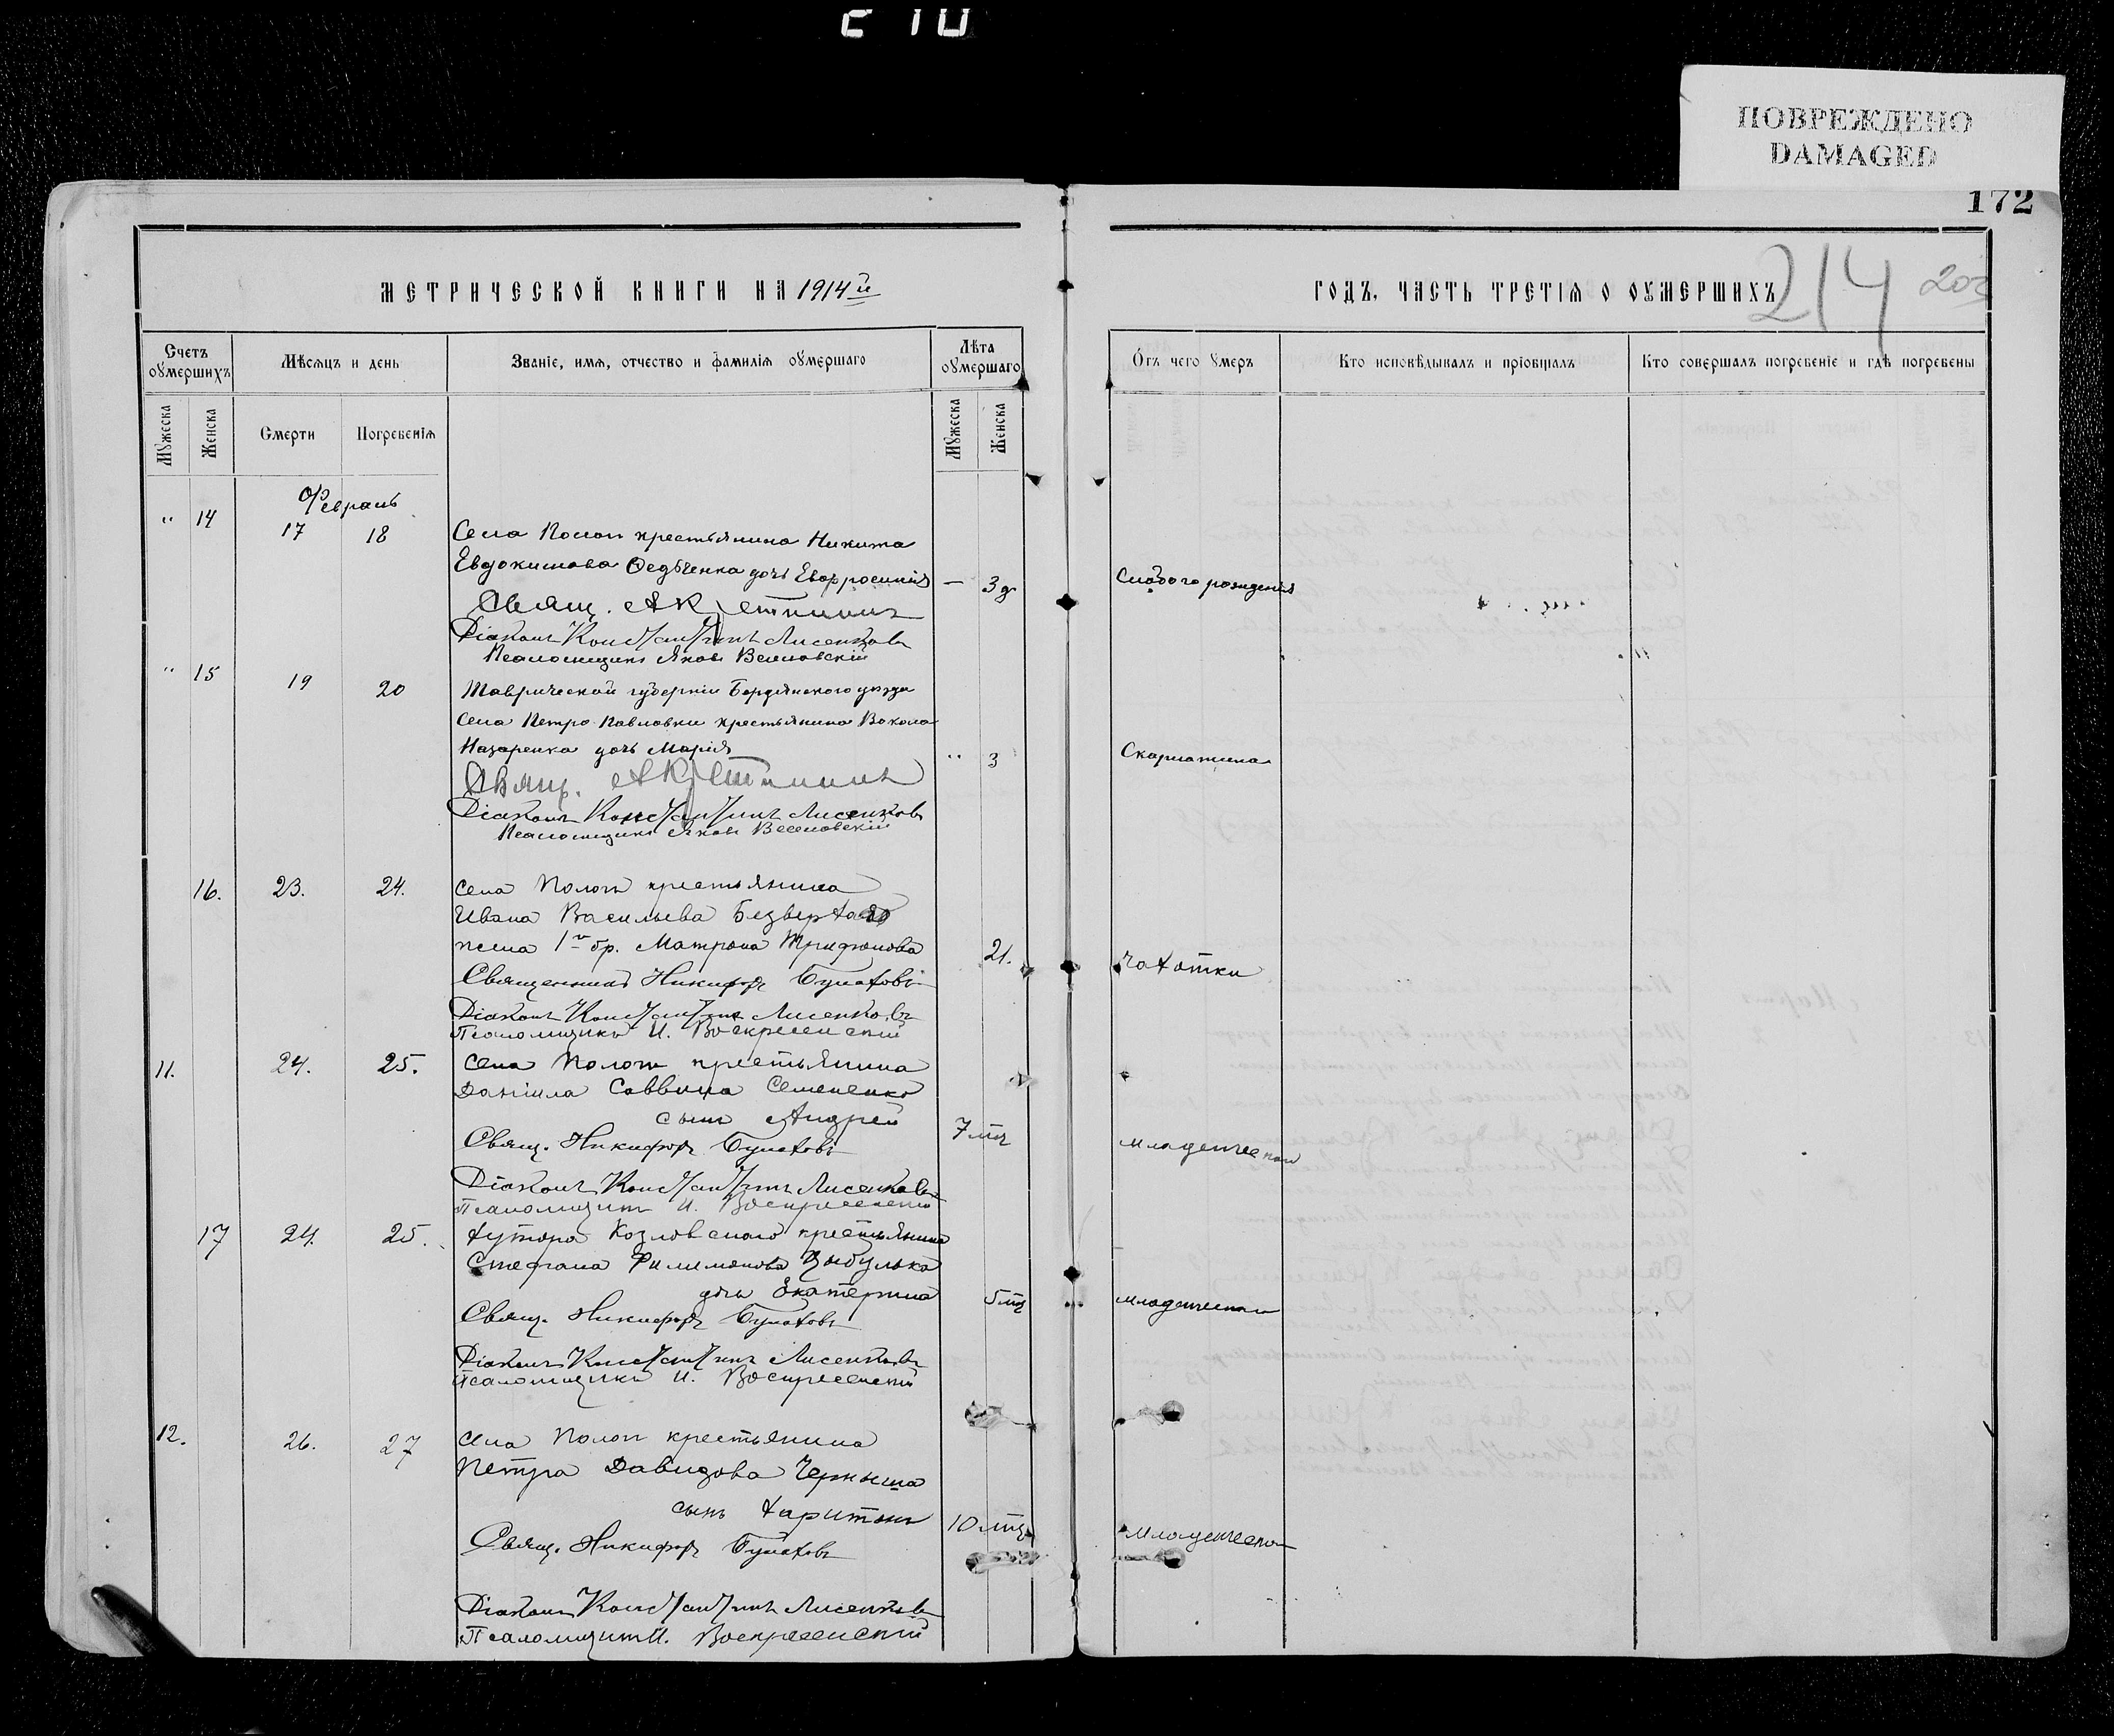 ПОВРЕЖДЕНО
DAMAGED
172
МЕТРИЧЕСКОЙ КНИГИ НА 1914й
ГОДЪ, ЧАСТЬ ТРЕТІЯ О ОУМЕРШИХЪ
214
Счетъ оумершихъ
Мѣсяцъ и день
Званіе, имя, отчество и фамилія оумершаго
Лѣта оумершаго
Отъ чего умеръ
Кто исповѣдывалъ и пріобщалъ
Кто совершалъ погребеніе и гдѣ погребены
Мужеска
Женска
Смерти
Погребенія
Мужеска
Женска
Февраль
" 14 17 18 Села Пологъ крестьянина Никиты
Евдокимова Ѳедѣченка дочь Евфросинія — 3 д Слабого рожденія
Свящ.
Діаконъ Константинъ Лисенковъ
Псаломщикъ Яковъ Веселовскій
" 15 19 20 Таврической губерніи Бердянского уѣзда
села Петро-Павловки крестьянина
Назаренка дочь Марія " 3 Скарлатина
Свящ.
Діаконъ Константинъ Лисенковъ
Псаломщикъ Яковъ Веселовскій
16. 23. 24. Села Пологъ крестьянина
Ивана Васильева
жена 1го бр. Матрона Трифонова 21. Чахотки
Священникъ Никифоръ Булаховъ
Діаконъ Константинъ Лисенковъ
Псаломщикъ И. Воскресенскій
11. 24. 25. Села Пологъ крестьянина
Даніила Саввина Семененко
сынъ Андрей 7 мц младенческой
Свящ. Никифоръ Булаховъ
Діаконъ Константинъ Лисенковъ
Псаломщикъ И. Воскресенскій
17 24. 25. Хутора Козловскаго крестьянина
Стефана Филимонова Цыбулька
дочь Екатерина 5 мц младенческой
Свящ. Никифоръ Булаховъ
Діаконъ Константинъ Лисенковъ
Псаломщикъ И. Воскресенскій
12. 26. 27 Села Пологъ крестьянина
Петра Давидова Черныша
сынъ Харитонъ 10 мц младенческой
Свящ. Никифоръ Булаховъ
Діаконъ Константинъ Лисенковъ
Псаломщикъ И. Воскресенскій